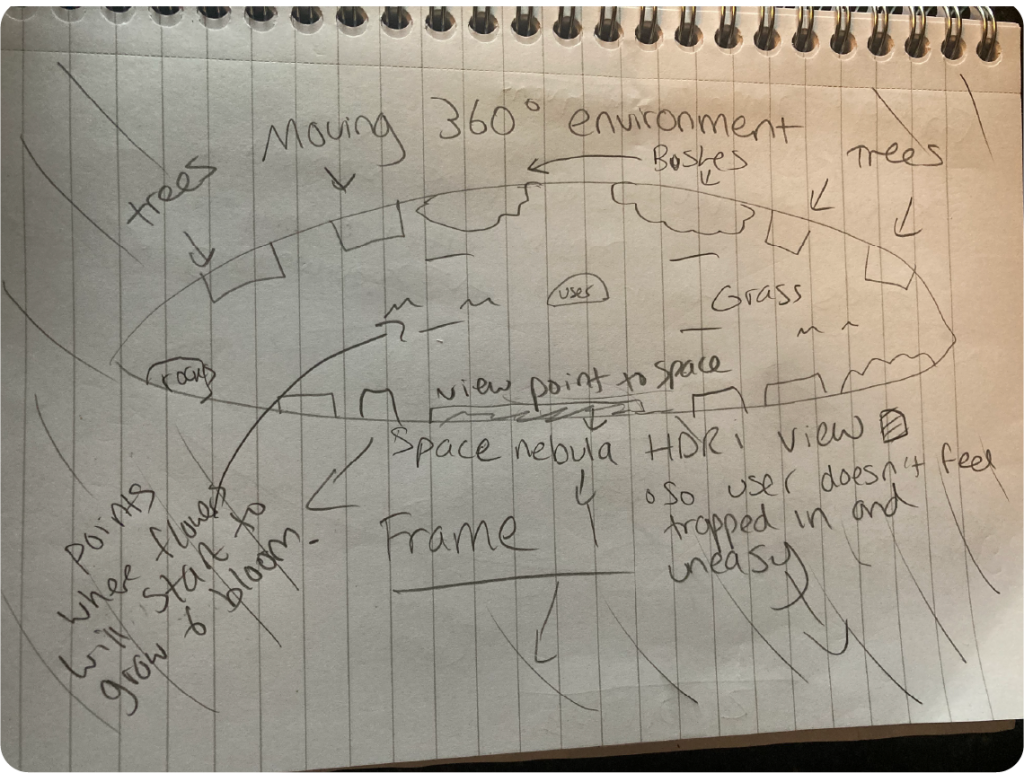 Moving 360° environment
trees
Bushes
Trees
user
Grass
rocks
view point to space
Space nebula HDRi view
Frame
so user doesn't feel
trapped in and
uneasy
Points
where flowers
will start to
grow & bloom.